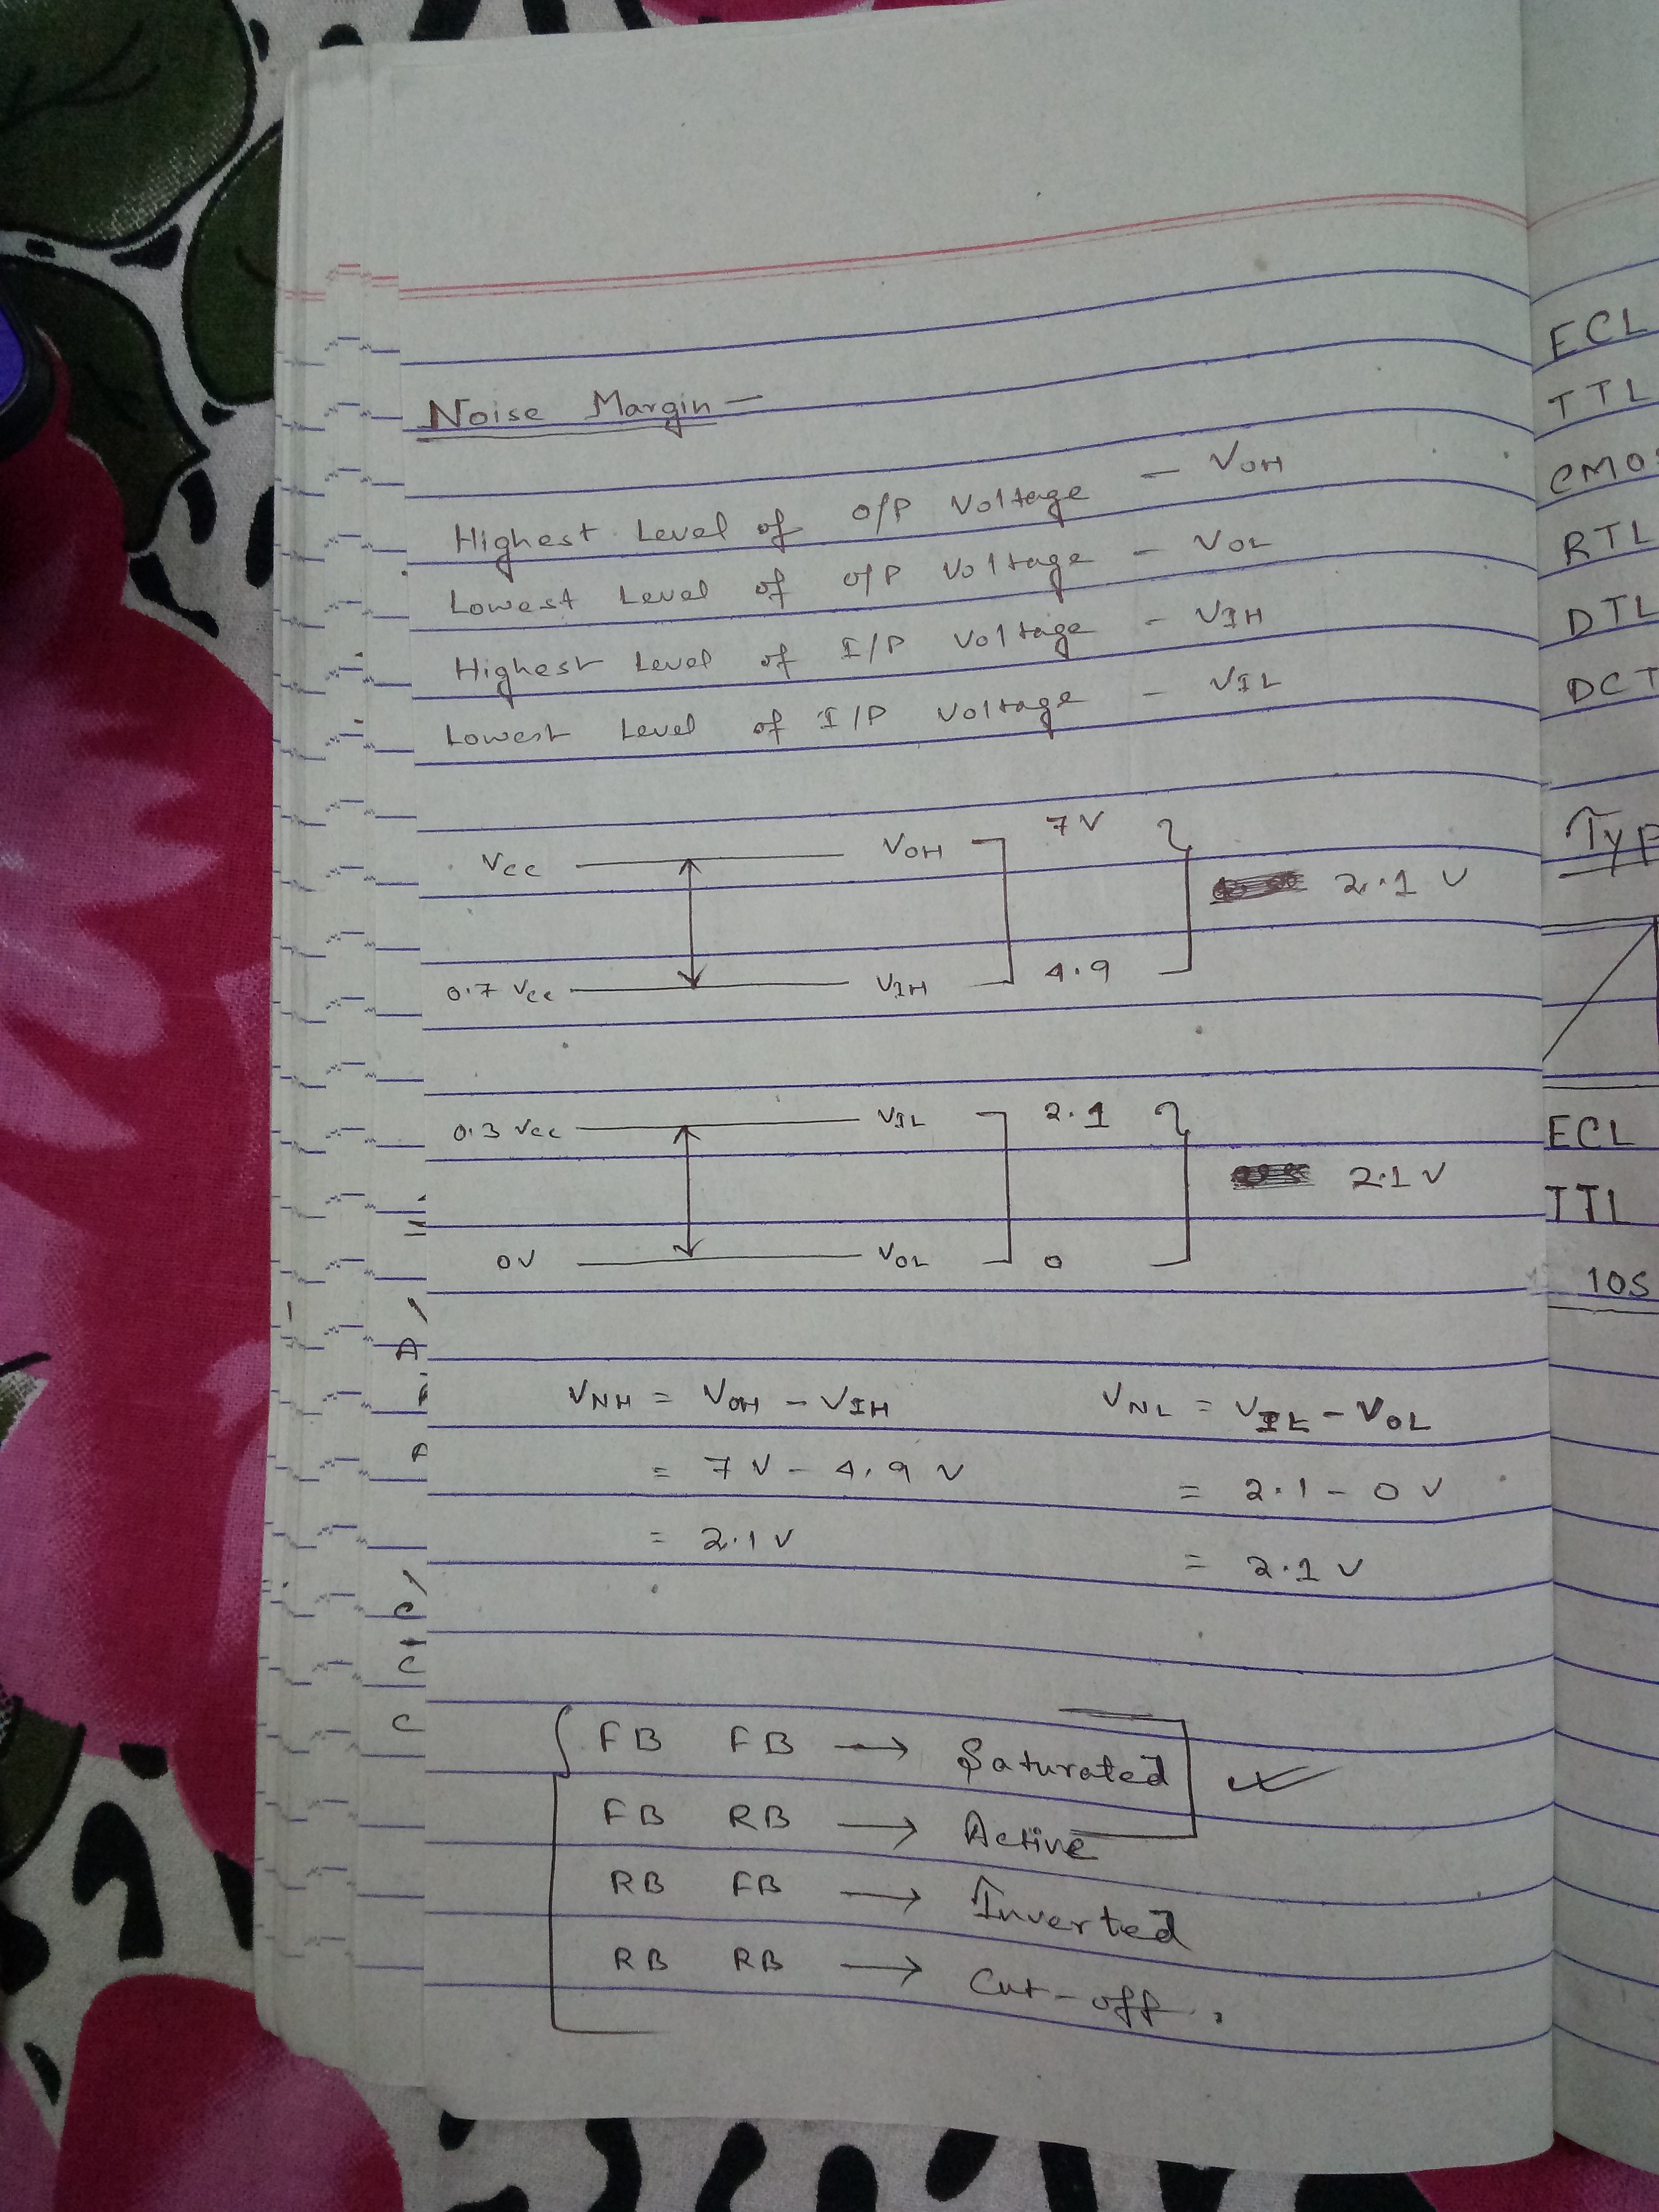 Noise Margin —
Highest Level of O/P Voltage — VOH
Lowest Level of O/P Voltage — VOL
Highest Level of I/P Voltage — VIH
Lowest Level of I/P Voltage — VIL
VCC VOH 7V
2.1 V
0.7 Vcc VIH 4.9
0.3 Vcc VIL 2.1
2.1 V
0V VOL 0
VNH = VOH - VIH VNL = VIL - VOL
= 7V - 4.9 V = 2.1 - 0 V
= 2.1 V = 2.1 V
FB FB → Saturated
FB RB → Active
RB FB → Inverted
RB RB → Cut-off.
ECL
TTL
CMOS
RTL
DTL
DCT
Typ
ECL
TTL
10S